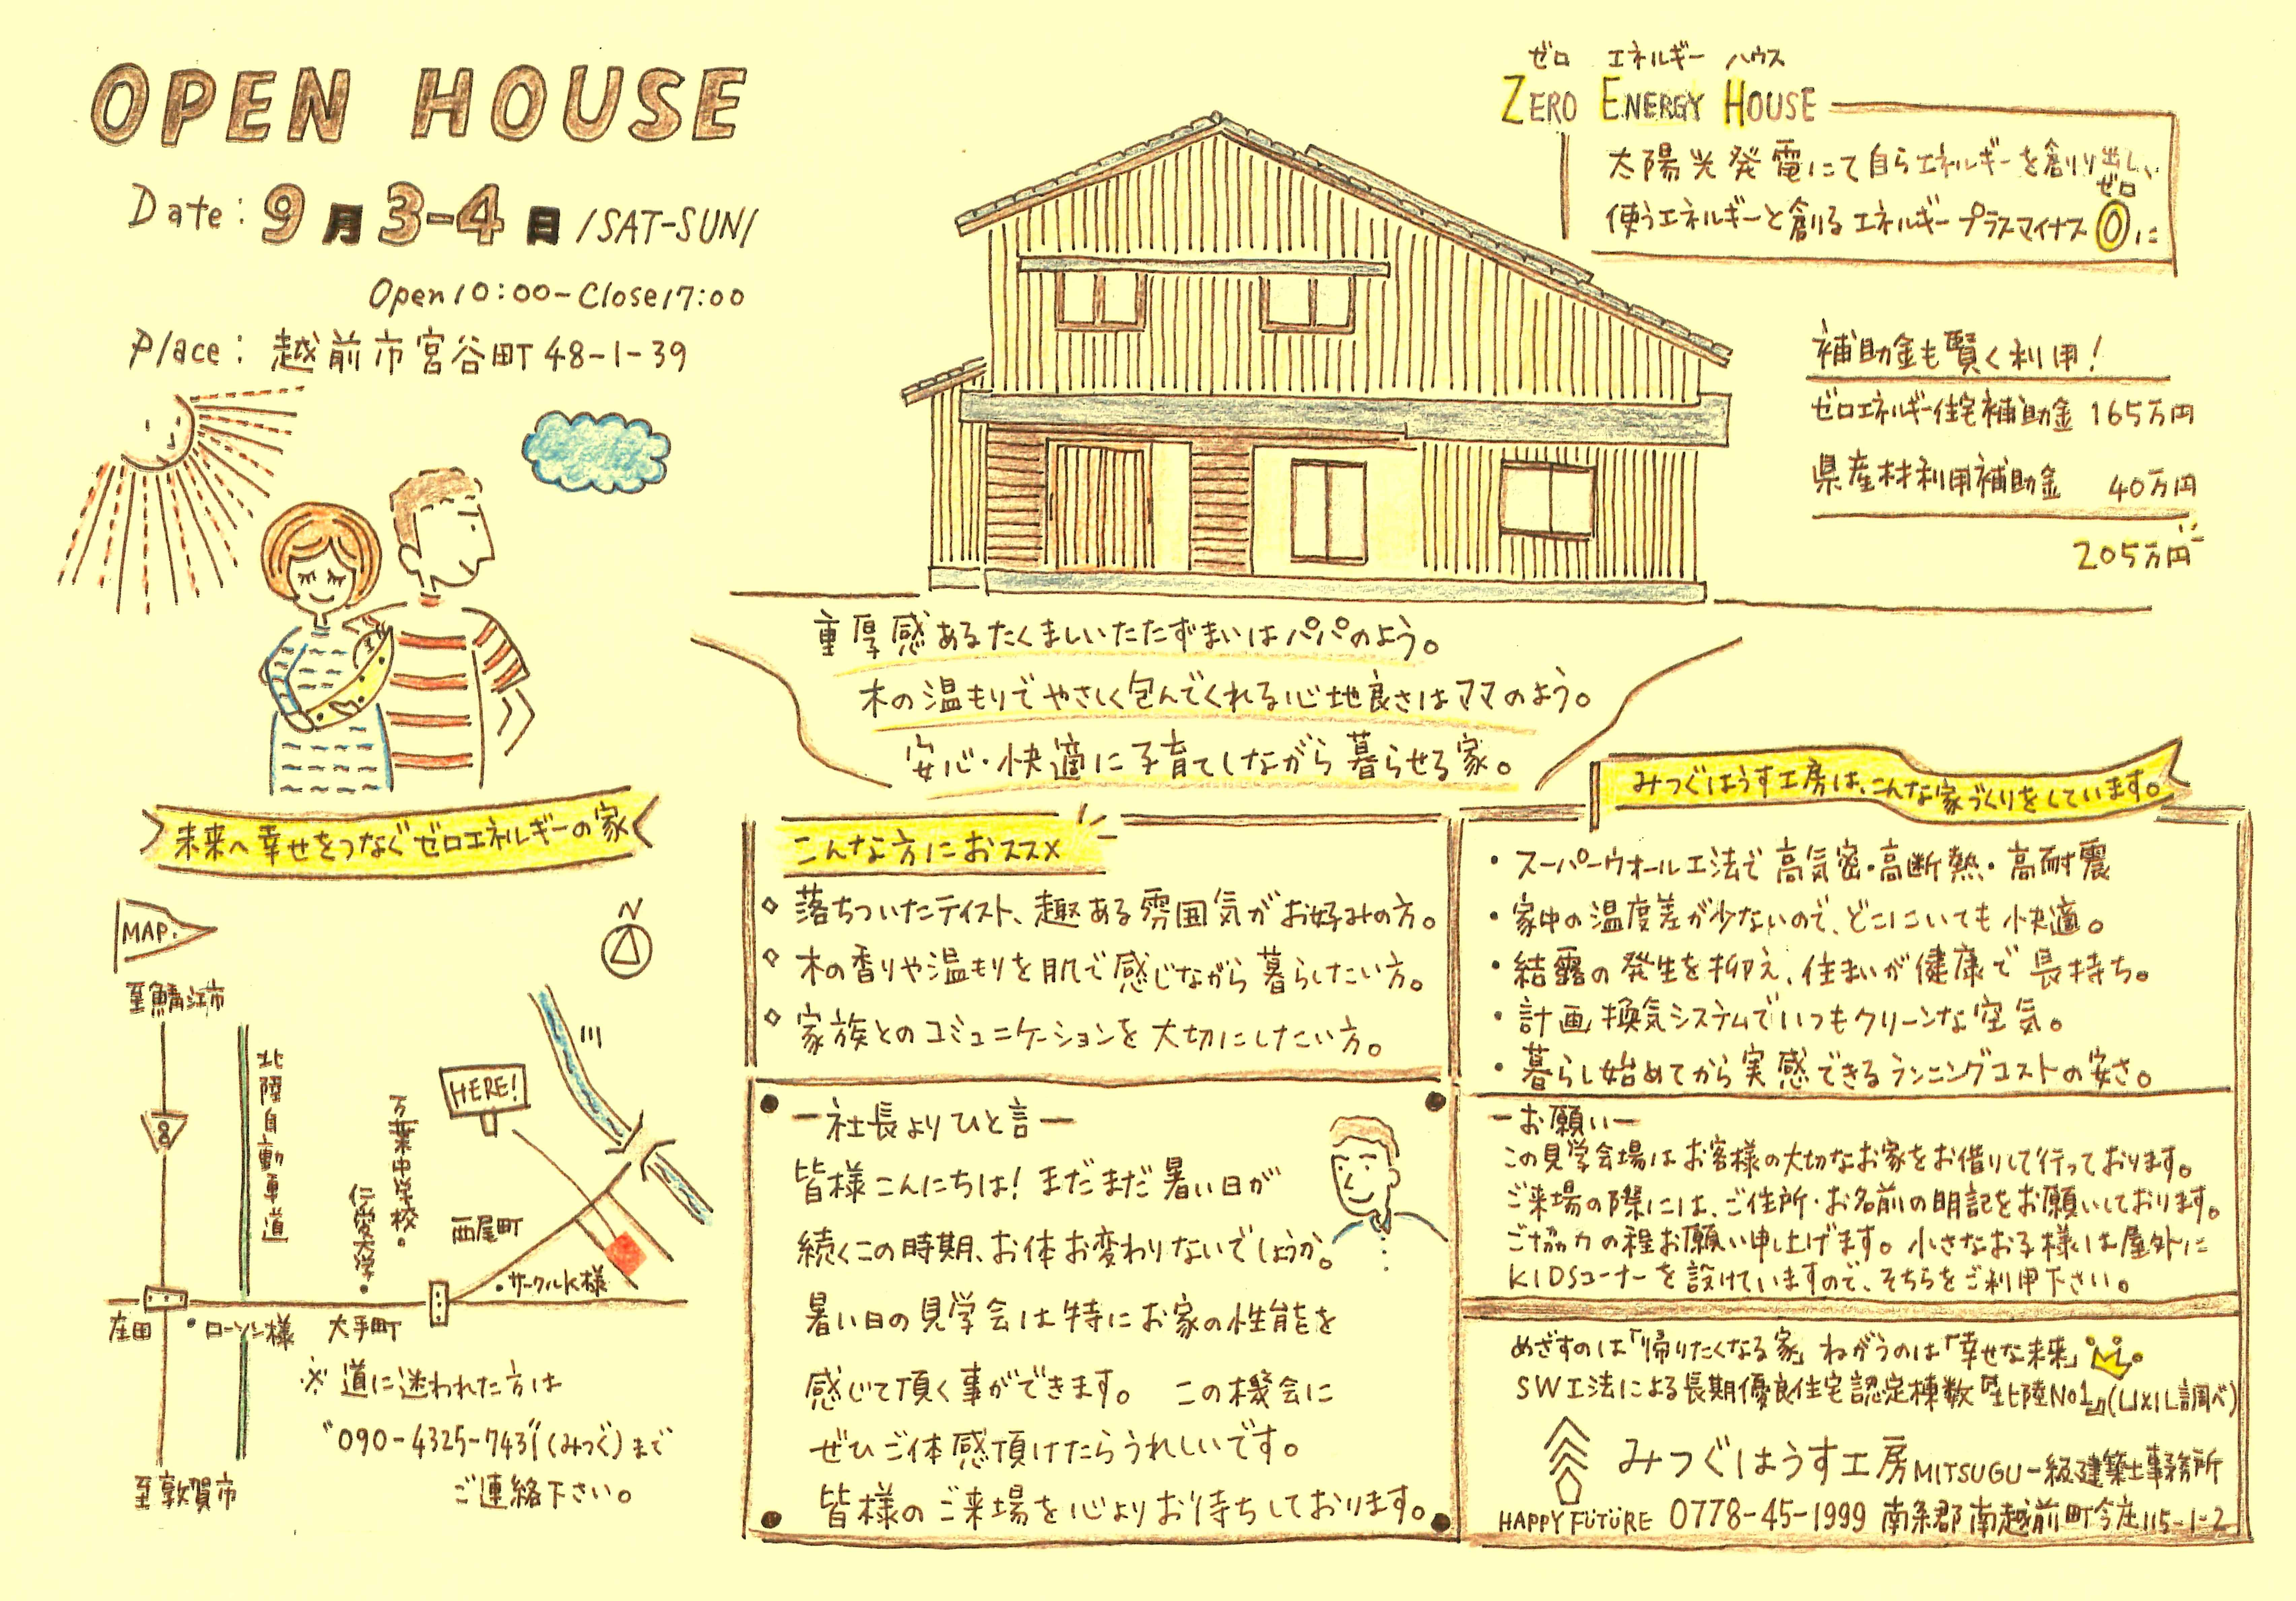 OPEN HOUSE
Date: 9月3-4日 /SAT-SUN/
Open10:00-Close17:00
Place: 越前市宮谷町48-1-39
未来へ幸せをつなぐゼロエネルギーの家
ゼロ エネルギー ハウス
ZERO ENERGY HOUSE
太陽光発電にて自らエネルギーを創り出し、
ゼロ
使うエネルギーと創るエネルギープラスマイナス0に
補助金も賢く利用!
ゼロエネルギー住宅補助金 165万円
県産材利用補助金 40万円
205万円
重厚感あるたくましいたたずまいはパパのよう。
木の温もりでやさしく包んでくれる心地良さはママのよう。
安心・快適に子育てしながら暮らせる家。
MAP.
N
至鯖江市
北陸自動車道
8
万葉中学校
仁愛大学
HERE!
川
西尾町
サークルK様
庄田
ローソン様
大手町
至敦賀市
※道に迷われた方は
"090-4325-7431"(みつぐ)まで
ご連絡下さい。
こんな方におススメ
落ちついたテイスト、趣ある雰囲気がお好みの方。
木の香りや温もりを肌で感じながら暮らしたい方。
家族とのコミュニケーションを大切にしたい方。
ー社長よりひと言ー
皆様こんにちは!まだまだ暑い日が
続くこの時期、お体お変わりないでしょうか。
暑い日の見学会は特にお家の性能を
感じて頂く事ができます。 この機会に
ぜひご体感頂けたらうれしいです。
皆様のご来場を心よりお待ちしております。
みつぐはうす工房は、こんな家づくりをしています。
・スーパーウォール工法で高気密・高断熱・高耐震
・家中の温度差が少ないので、どこにいても快適。
・結露の発生を抑え、住まいが健康で長持ち。
・計画換気システムでいつもクリーンな空気。
・暮らし始めてから実感できるランニングコストの安さ。
ーお願いー
この見学会場はお客様の大切なお家をお借りして行っております。
ご来場の際には、ご住所・お名前の明記をお願いしております。
ご協力の程お願い申し上げます。小さなお子様は屋外に
KIDSコーナーを設けていますので、そちらをご利用下さい。
めざすのは「帰りたくなる家」ねがうのは「幸せな未来」
SW工法による長期優良住宅認定棟数『北陸No1』(LIXIL調べ)
みつぐはうす工房 MITSUGU一級建築士事務所
HAPPY FUTURE 0778-45-1999 南条郡南越前町今庄115-1-2